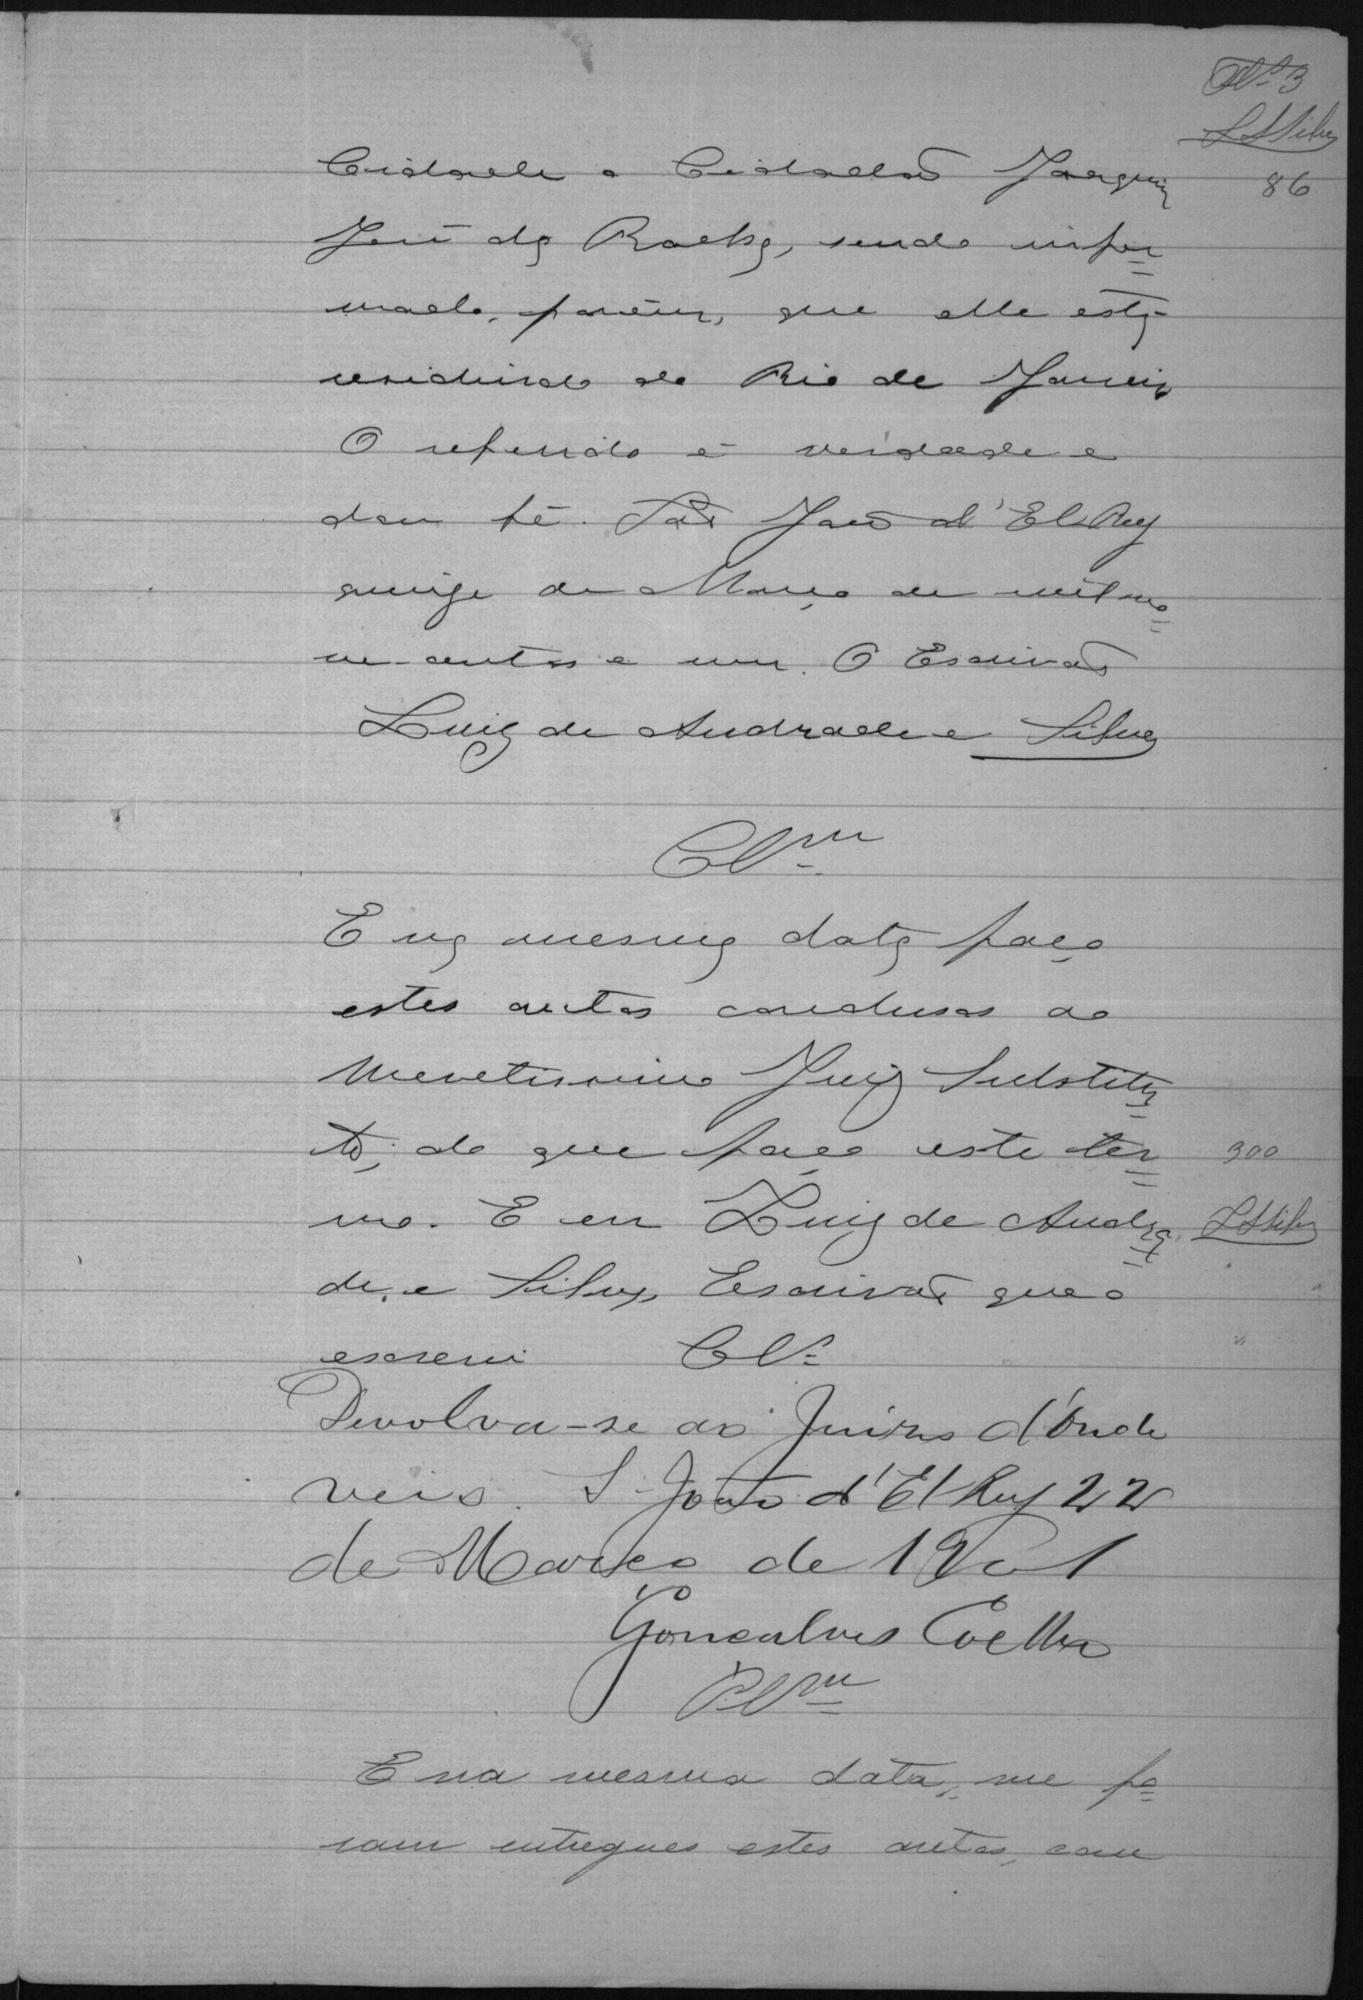 Nº 3
LASilva
86
Cidade o Cidadão Joaquim
José da Rocha, sendo infor=
mado, porém, que elle está
residindo no Rio de Janeiro
O referido é verdade e
dou fé. São João d'El-Rey
quinze de Março de mil no=
ve centos e um. O Escrivão
Luiz de Andrade e Silva
Clm
E na mesma data faço
estes autos conclusos ao
Meretissimo Juiz Substitu=
to, do que faço este ter=
300
mo. E eu Luiz de Andra=
LASilva
de e Silva, Escrivão que o
escrevi Clº
Devolva-se ao Juizo d'onde
veio. S. João d'El Rey 22
de Março de 1901
Gonçalves Coelho
E na mesma data, me fo=
ram entregues estes autos, com